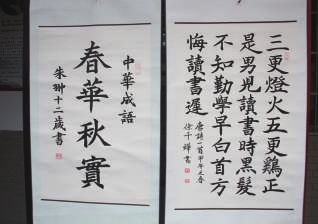 三更燈火五更鷄正
是男兒讀書時黑髮
不知勤學早白首方
悔讀書遲
唐詩一首甲午之春
徐千 書
中華成語
春華秋實
朱翀十二歲書